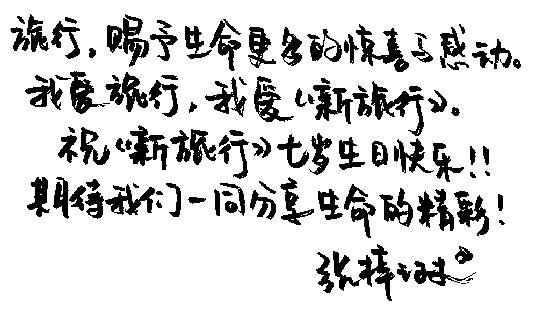 旅行，赐予生命更多的惊喜与感动。
我爱旅行，我爱《新旅行》。
祝《新旅行》七岁生日快乐!!
期待我们一同分享生命的精彩!
张梓琳